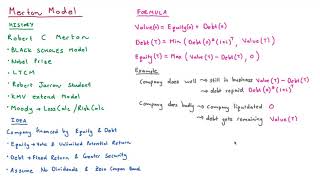 Merton Model
HISTORY
Robert C Merton
• BLACK SCHOLES MODEL
• Nobel Prize
• LTCM
• Robert Jarrow Student
• KMV extend Model
• Moody → LossCalc / RiskCalc
IDEA
Company Financed by Equity & Debt
• Equity → Vote & Unlimited Potential Return
• Debt → Fixed Return & Greater Security
• Assume No Dividends & Zero Coupon Bond
FORMULA
Value(0) = Equity(0) + Debt(0)
Debt(T) = Min ( Debt(0)*(1+i)^T, Value(T) )
Equity(T) = Max ( Value(T) - Debt(T), 0 )
Example
Company does well → still in business Value(T) - Debt(T)
→ debt repaid Debt(0)*(1+i)^T
Company does badly → company liquidated 0
→ debt gets remaining Value(T)